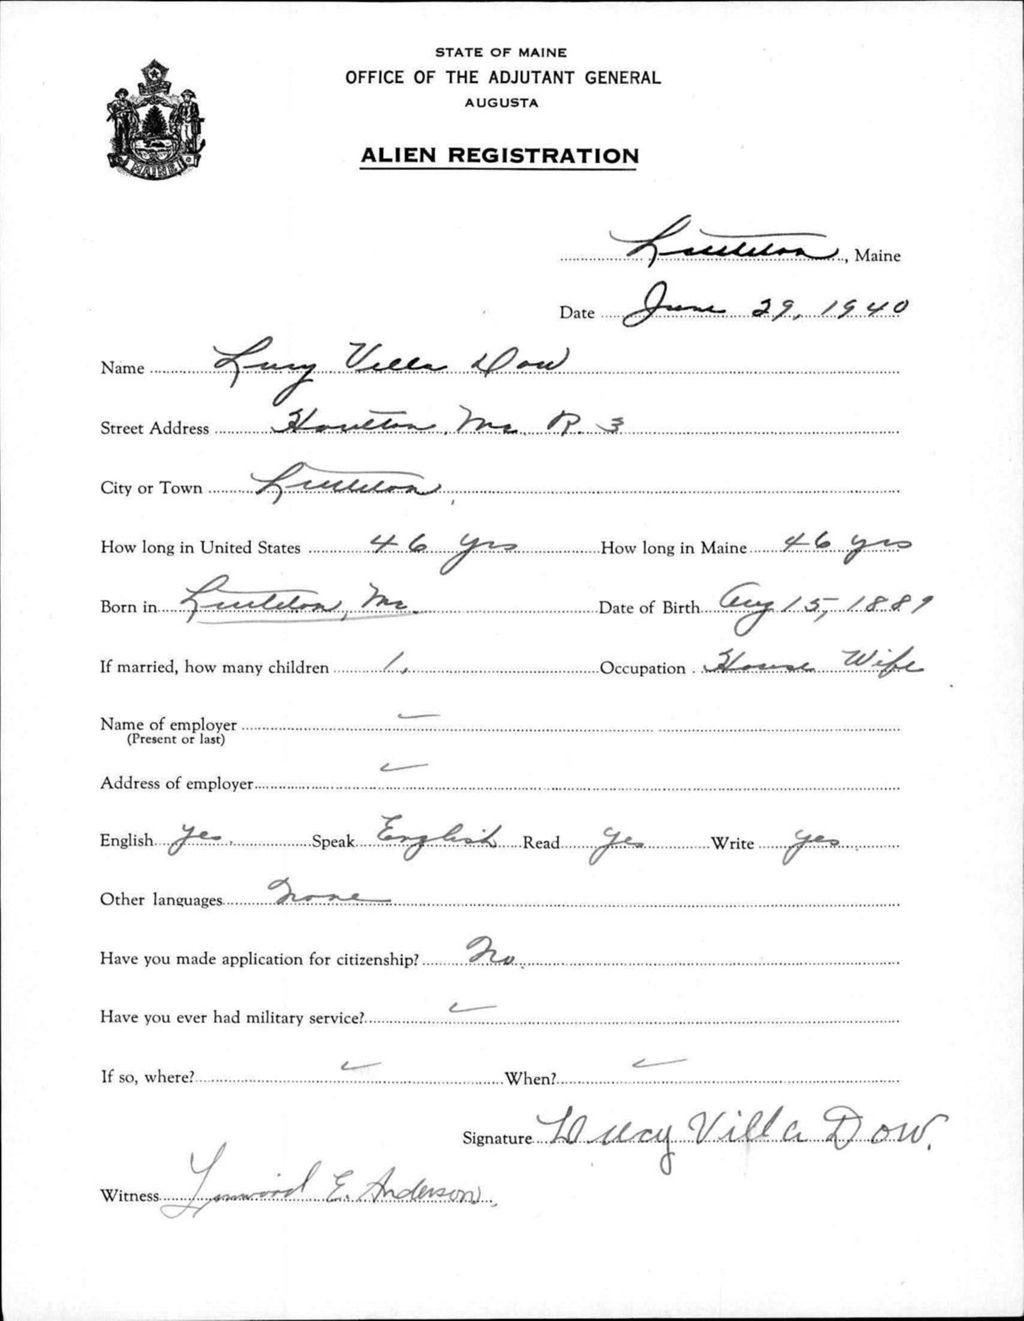 STATE OF MAINE
OFFICE OF THE ADJUTANT GENERAL
AUGUSTA
ALIEN REGISTRATION
MAINE
Littleton, Maine
Date June 29, 1940
Name Lucy Villa Dow
Street Address Houlton, Me. R. 3
City or Town Littleton
How long in United States 46 yrs How long in Maine 46 yrs
Born in Littleton, Me. Date of Birth Aug 15, 1889
If married, how many children 1. Occupation House Wife
Name of employer
(Present or last)
Address of employer
English yes. Speak English Read yes Write yes
Other languages None
Have you made application for citizenship? No.
Have you ever had military service?
If so, where? When?
Signature Lucy Villa Dow.
Witness Linwood E. Anderson.